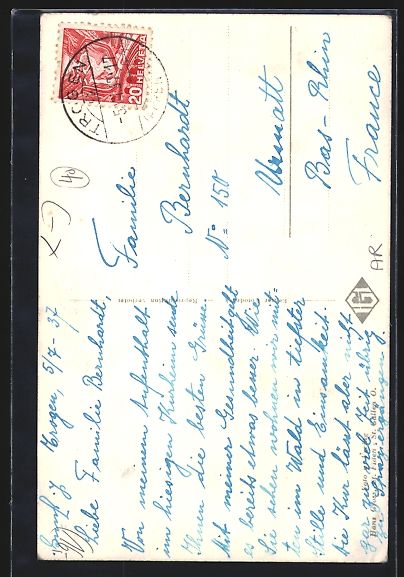 Trogen, 5/7-37
Liebe Familie Bernhardt,
Von meinem Aufenthalt
im hiesigen Kurheim sende
Ihnen die besten Grüsse
Mit meiner Gesundheit geht
es bereits etwas besser. Wie
Sie sehen wohnen wir mit-
ten im Wald in tiefster
Stille und Einsamkeit.
Die Kur lässt aber nicht
gar zu viele Zeit übrig
zu Spaziergängen.
Familie
Bernhardt
No 150
Urmatt
Bas-Rhin
France
HELVETIA
20
TROGEN
40
AR
Reproduktion verboten